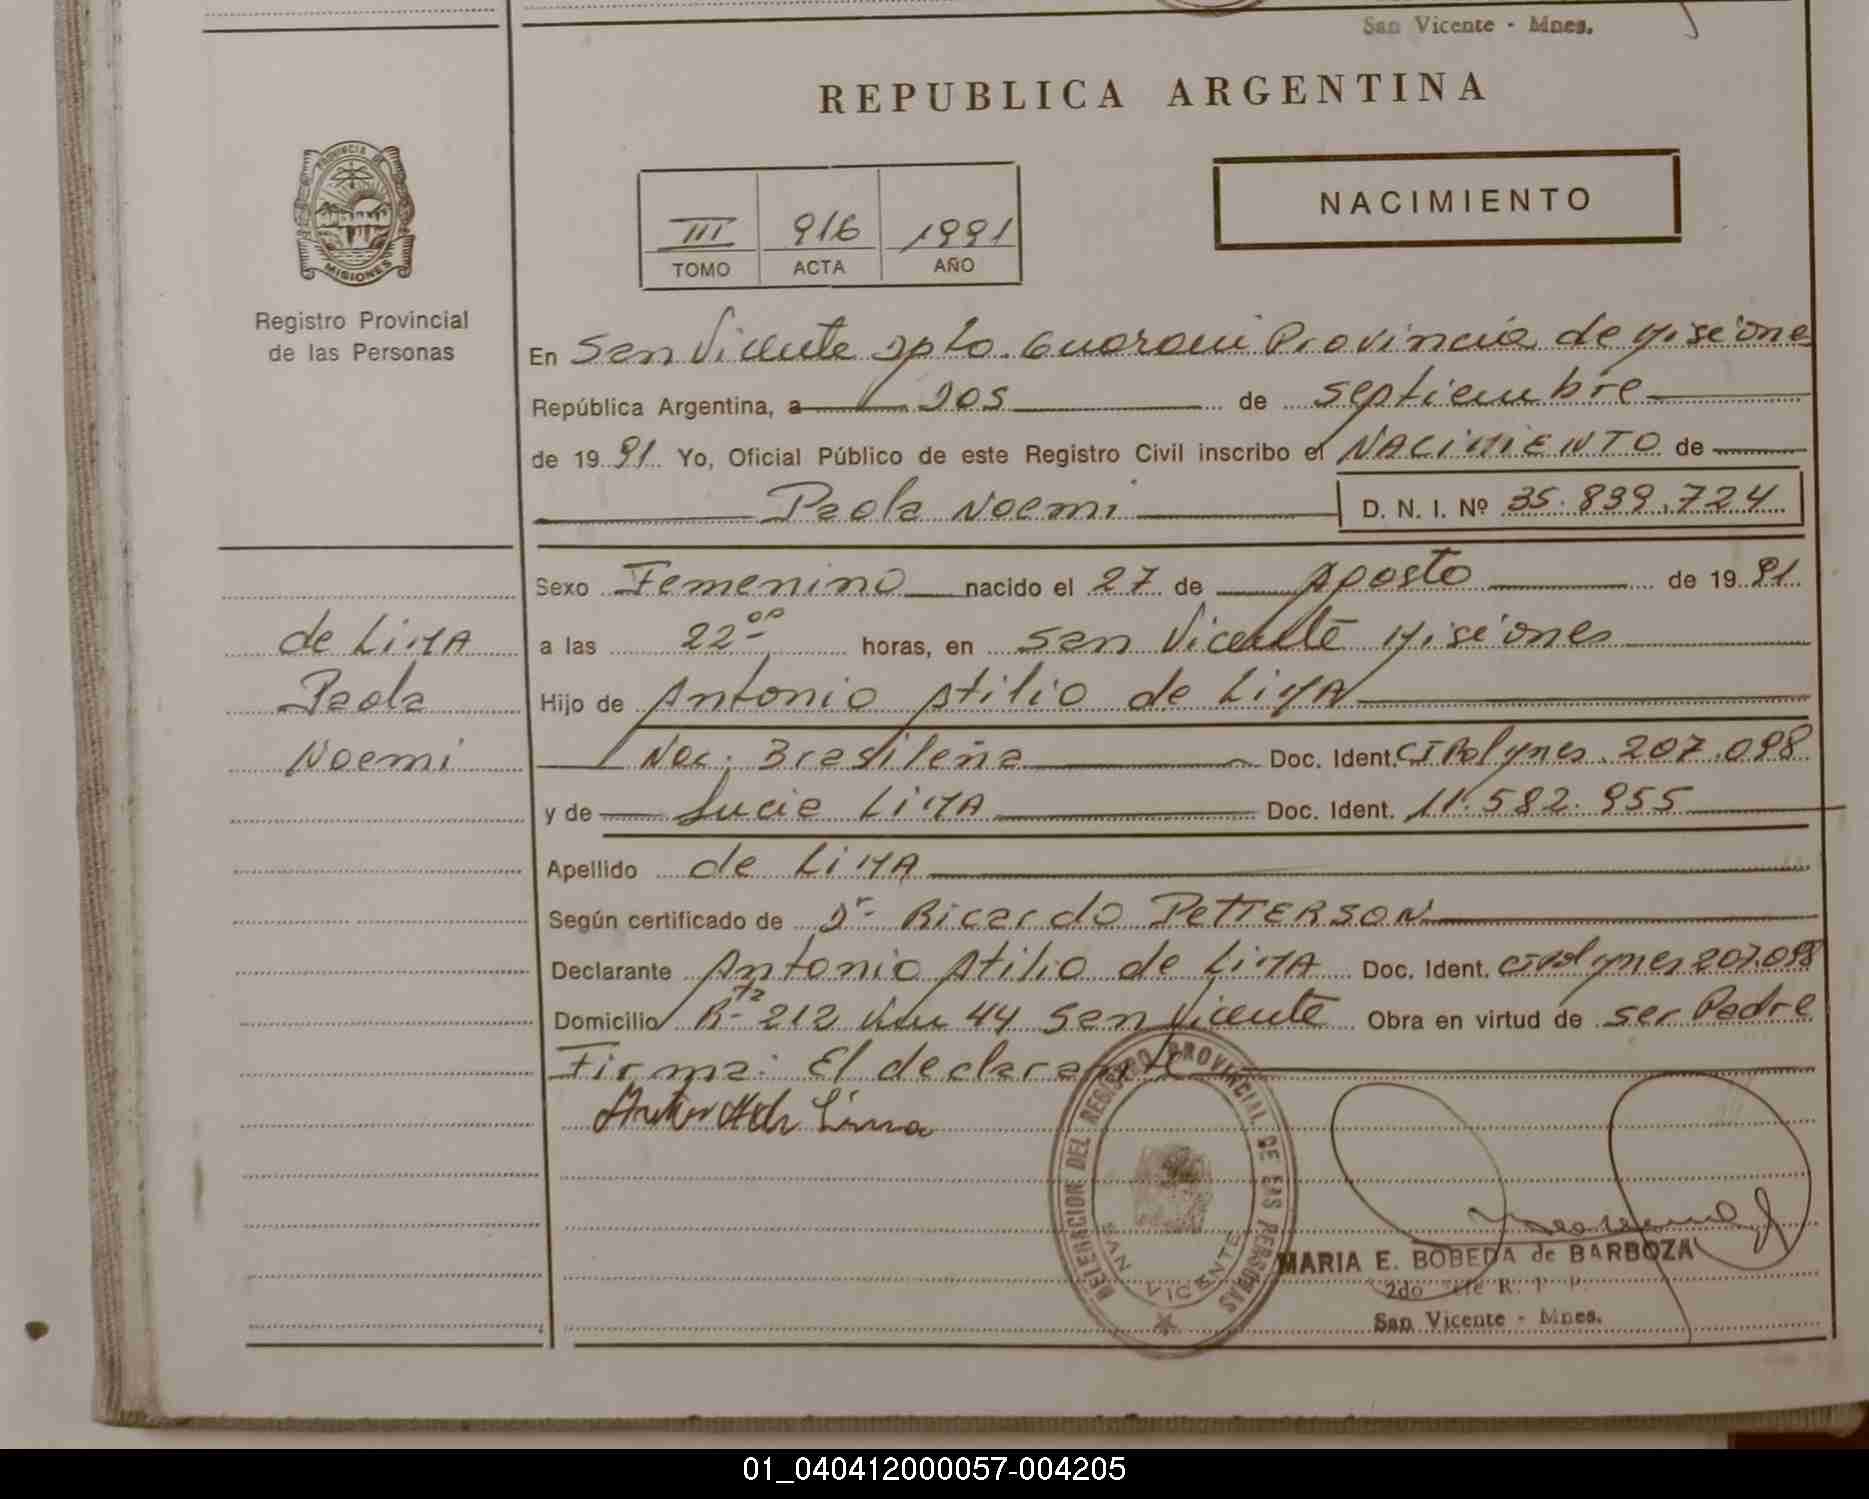 San Vicente - Mnes.
REPUBLICA ARGENTINA
PROVINCIA DE
MISIONES
Registro Provincial
de las Personas
III 916 1991
TOMO ACTA AÑO
NACIMIENTO
En San Vicente Dpto. Guarani Provincia de Misiones
República Argentina, a Dos de septiembre
de 19 91. Yo, Oficial Público de este Registro Civil inscribo el NACIMIENTO de
Paola Noemi D. N. I. Nº 35.839.724
Sexo Femenino nacido el 27 de Agosto de 19 91
a las 22 00 horas, en San Vicente Misiones
Hijo de Antonio Atilio de LIMA
Nac. Brasileña Doc. Ident. CI Pol Mnes. 207.098
y de Lucia LIMA Doc. Ident. 11.582.955
Apellido de LIMA
Según certificado de Dr Ricardo PETTERSON
Declarante Antonio Atilio de LIMA Doc. Ident. CI Pol Mnes 207.098
Domicilio R-ta 212 km 44 San Vicente Obra en virtud de ser Padre
Firma: El declarante
Lima
de LIMA
Paola
Noemi
DELEGACION DEL REGISTRO PROVINCIAL DE LAS PERSONAS
SAN VICENTE
MARIA E. BOBEDA de BARBOZA
2do Jefe R. P. P.
San Vicente - Mnes.
01_040412000057-004205